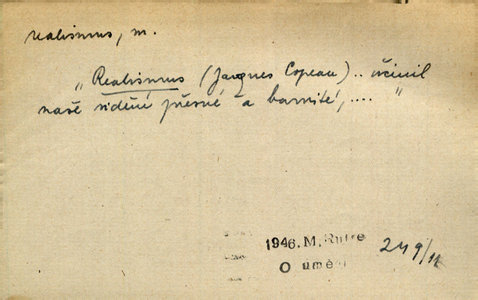 realismus, m.
„Realismus (Jacques Copeau).. učinil
naše vidění přesné a barvité, .... "
1946. M. Rutte
O umění
249/11